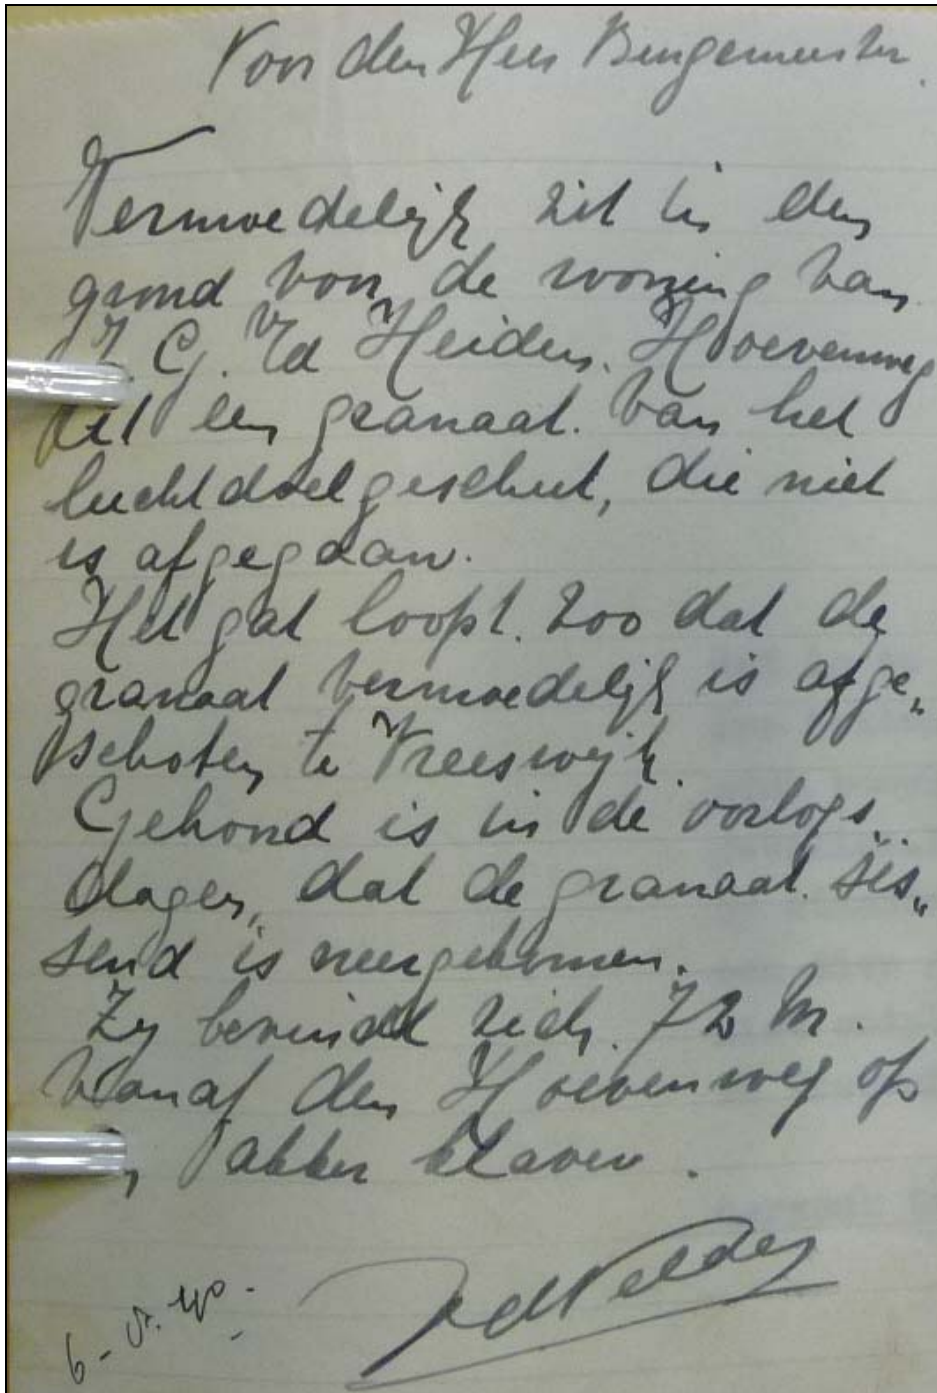 Voor den Heer Burgemeester.
Vermoedelijk zit in den
grond voor de woning van
G. v/d Heiden. Hoevenweg
zit een granaat. van het
luchtdoelgeschut, die niet
is afgegaan.
Het gat loopt. zoo dat de
granaat vermoedelijk is afge„
schoten te Vreeswijk.
Gehoord is in de oorlogs„
dagen„ dat de granaat. sis„
send is neergekomen.
Zij bevindt zich. 72 M.
vanaf den Hoevenweg op
akker klaver.
6-
40.-